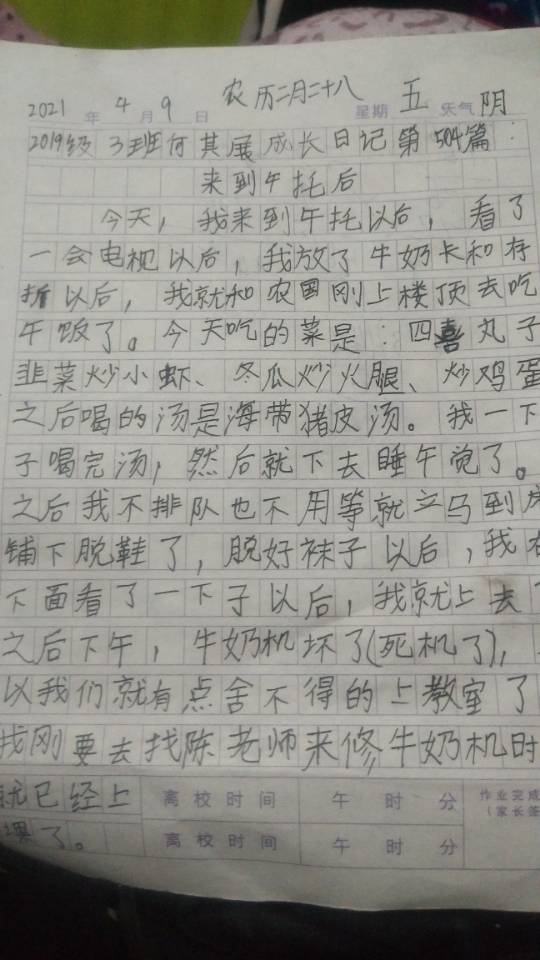 农历二月二十八
2021 年 4 月 9 日 星期 五 天气 阴
2019级 3班何其展成长日记第504篇:
来到午托后
今天，我来到午托以后，看了
一会电视以后，我放了牛奶卡和存
折以后，我就和农国刚上楼顶去吃
午饭了。今天吃的菜是:四喜丸子
韭菜炒小虾、冬瓜炒火腿、炒鸡蛋
之后喝的汤是海带猪皮汤。我一下
子喝完汤，然后就下去睡午觉了。
之后我不排队也不用等就立马到床
铺下脱鞋了，脱好袜子以后，我在
下面看了一下子以后，我就上去了
之后下午，牛奶机坏了(死机了)，
以我们就有点舍不得的上教室了
我刚要去找陈老师来修牛奶机时
就已经上 离校时间 午 时 分 作业完成
课了。 离校时间 午 时 分 (家长签